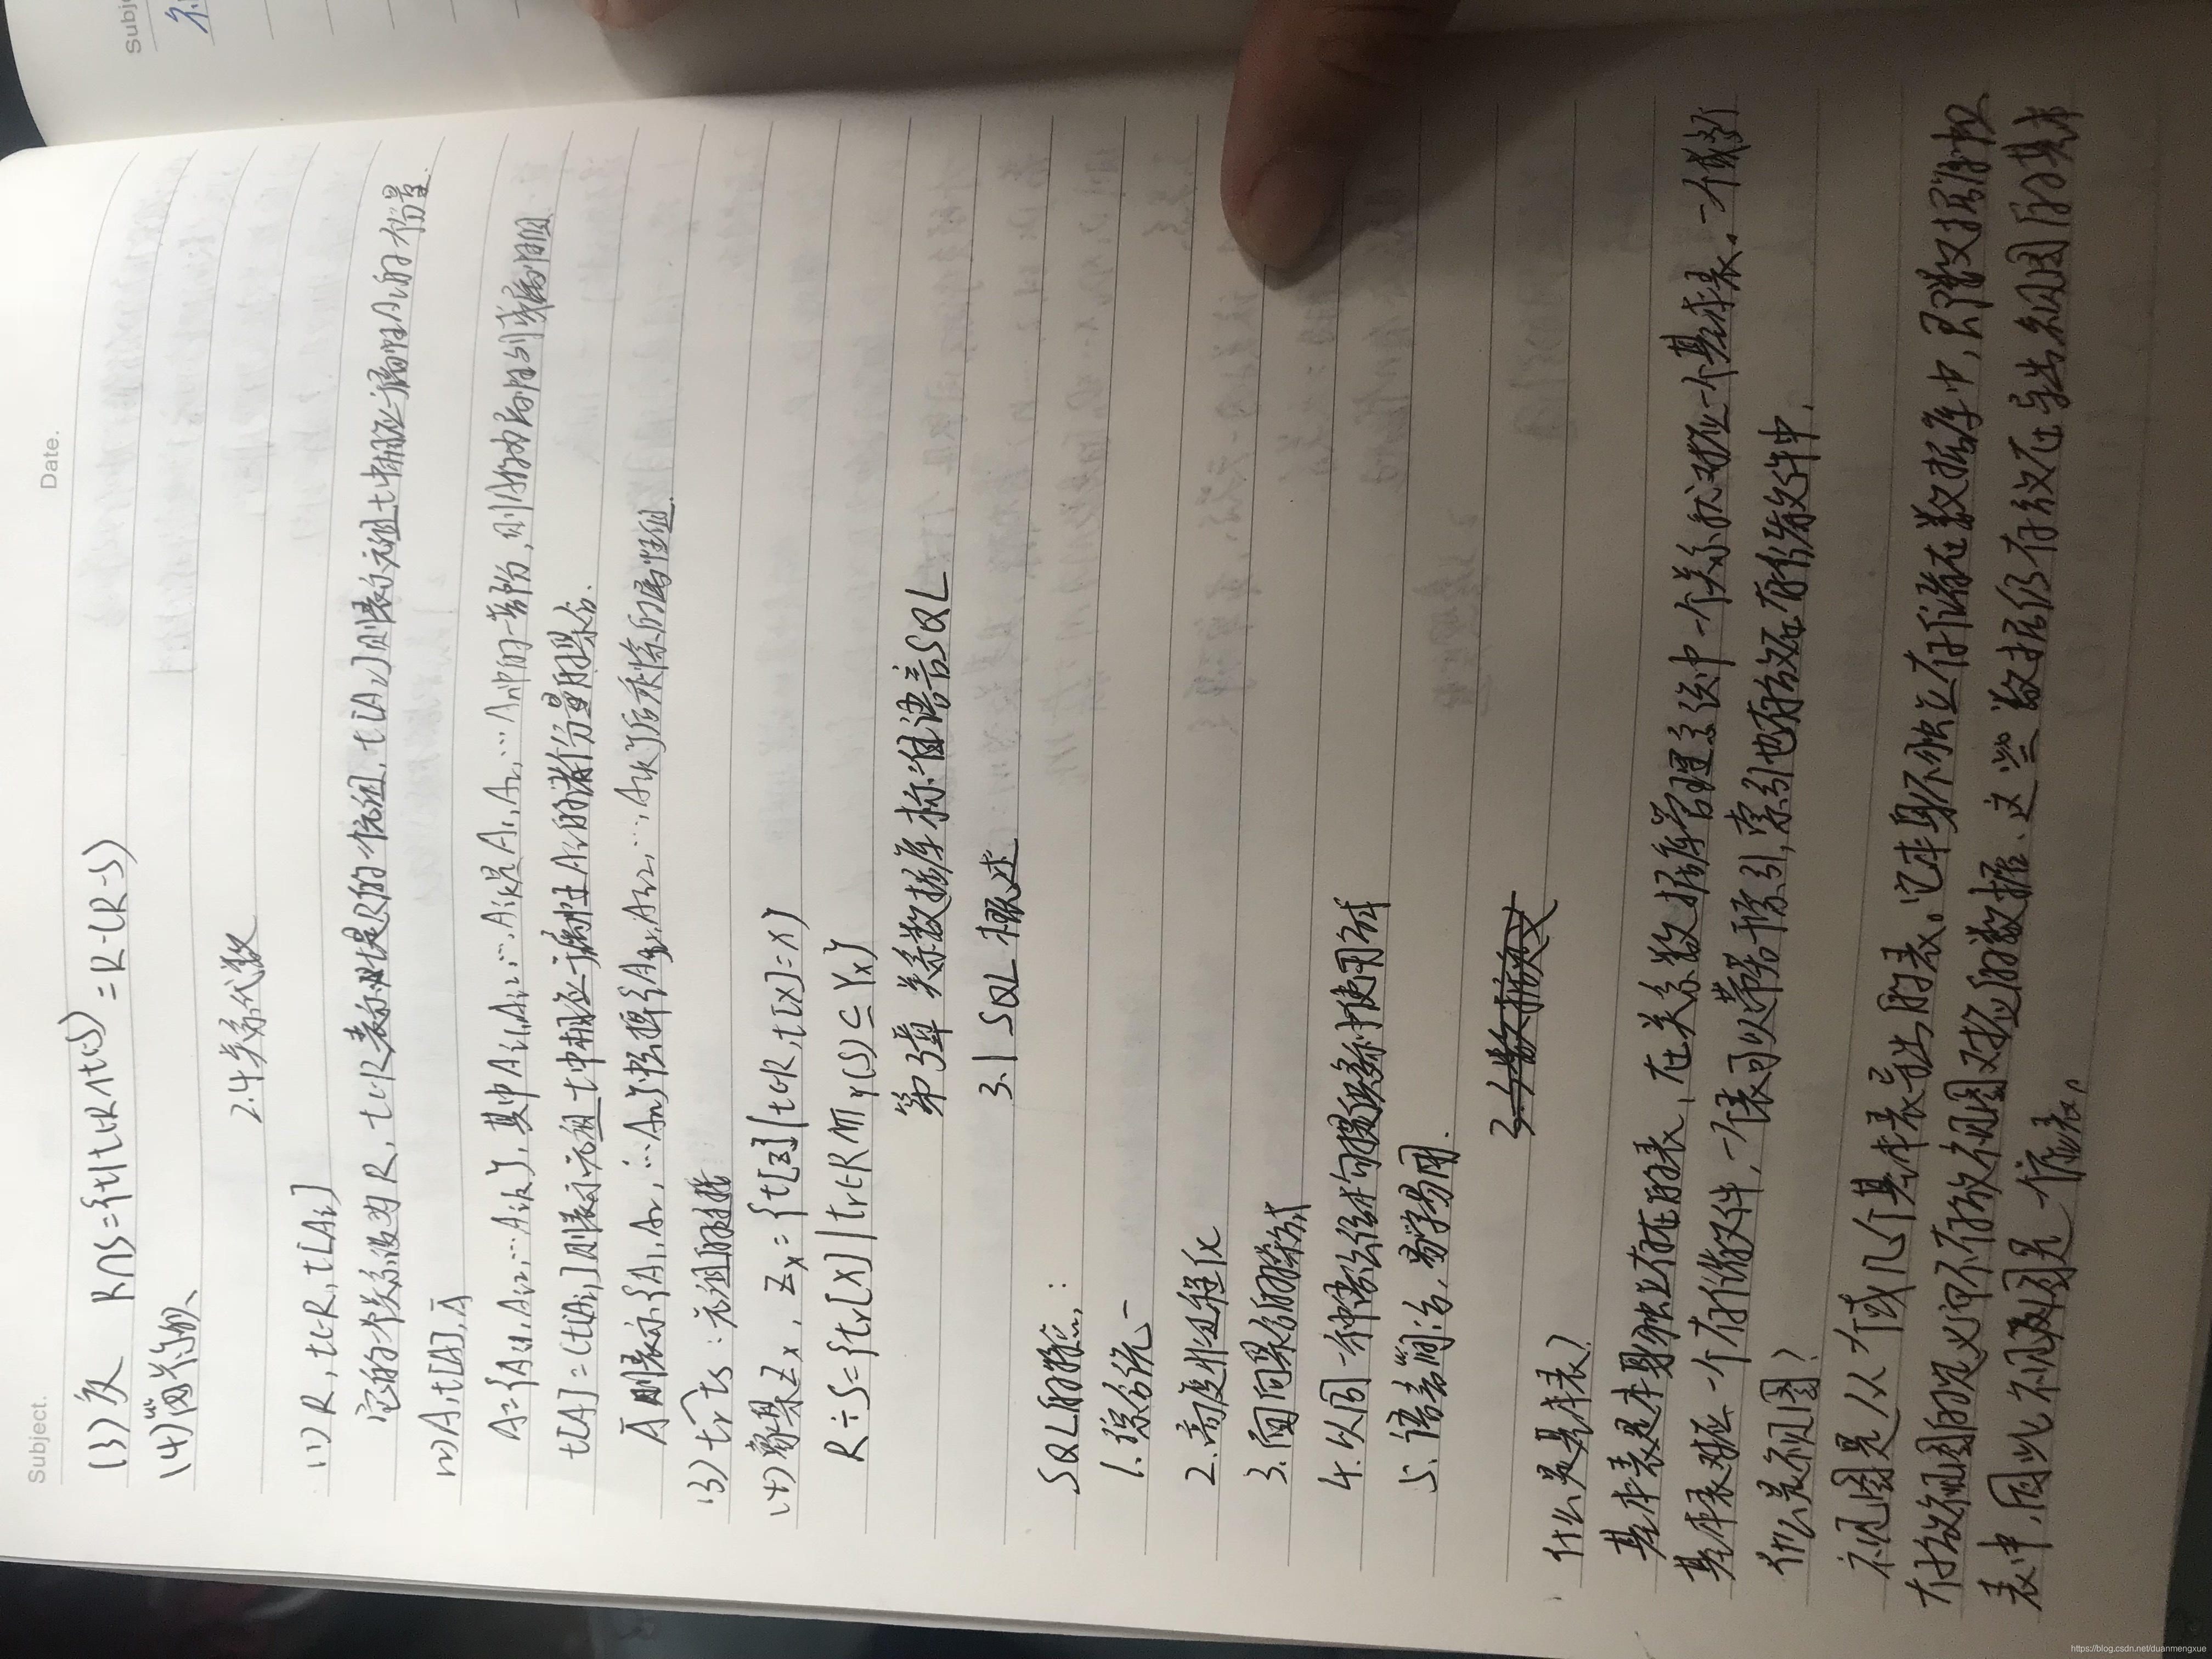 Subject.
Date.
(3) 交 R∩S={t|t∈R∧t∈S}=R-(R-S)
(4)
2.4关系代数
(1) R, t∈R, t[Ai]
它的一个关系设为R, t∈R表示t是R的一个元组, t[Ai]则表示元组t中相应于属性Ai的一个分量.
(2) A, t[A], Ā
A={Ai1,Ai2,…Aik}, 其中Ai1,Ai2,…,Aik是A1,A2,…An中的一部分, 则A称为属性列或属性组
t[A]=(t[Ai1]则表示元组t中相应于属性Ai的诸个分量的集合.
Ā则表示{A1,A2,…An}中去掉{Ai1,Ai2,…,Aik}后剩余的属性组.
(3) tr⌒ts:元组的连接
(4) 象集Zx, Zx={t[Z]|t∈R,t[X]=x}
R÷S={tr[X]|tr∈R∧πy(S)⊆Yx}
第3章 关系数据库标准语言SQL
3.1 SQL概述
SQL的特点:
1.综合统一
2.高度非过程化
3.面向集合的操作方式
4.以同一种语法结构提供多种使用方式
5.语言简洁,易学易用.
什么是基本表?
基本表是本身独立存在的表,在关系数据库管理系统中一个关系就对应一个基本表。一个或多个
基本表对应一个存储文件,一个表可以带若干索引,索引也存放在存储文件中.
什么是视图?
视图是从一个或几个基本表导出的表。它本身不独立存储在数据库中,即数据库中仅
存放视图的定义而不存放视图对应的数据、这些数据仍存放在导出视图的基本
表中,因此视图是一个虚表。
https://blog.csdn.net/duanmengxue